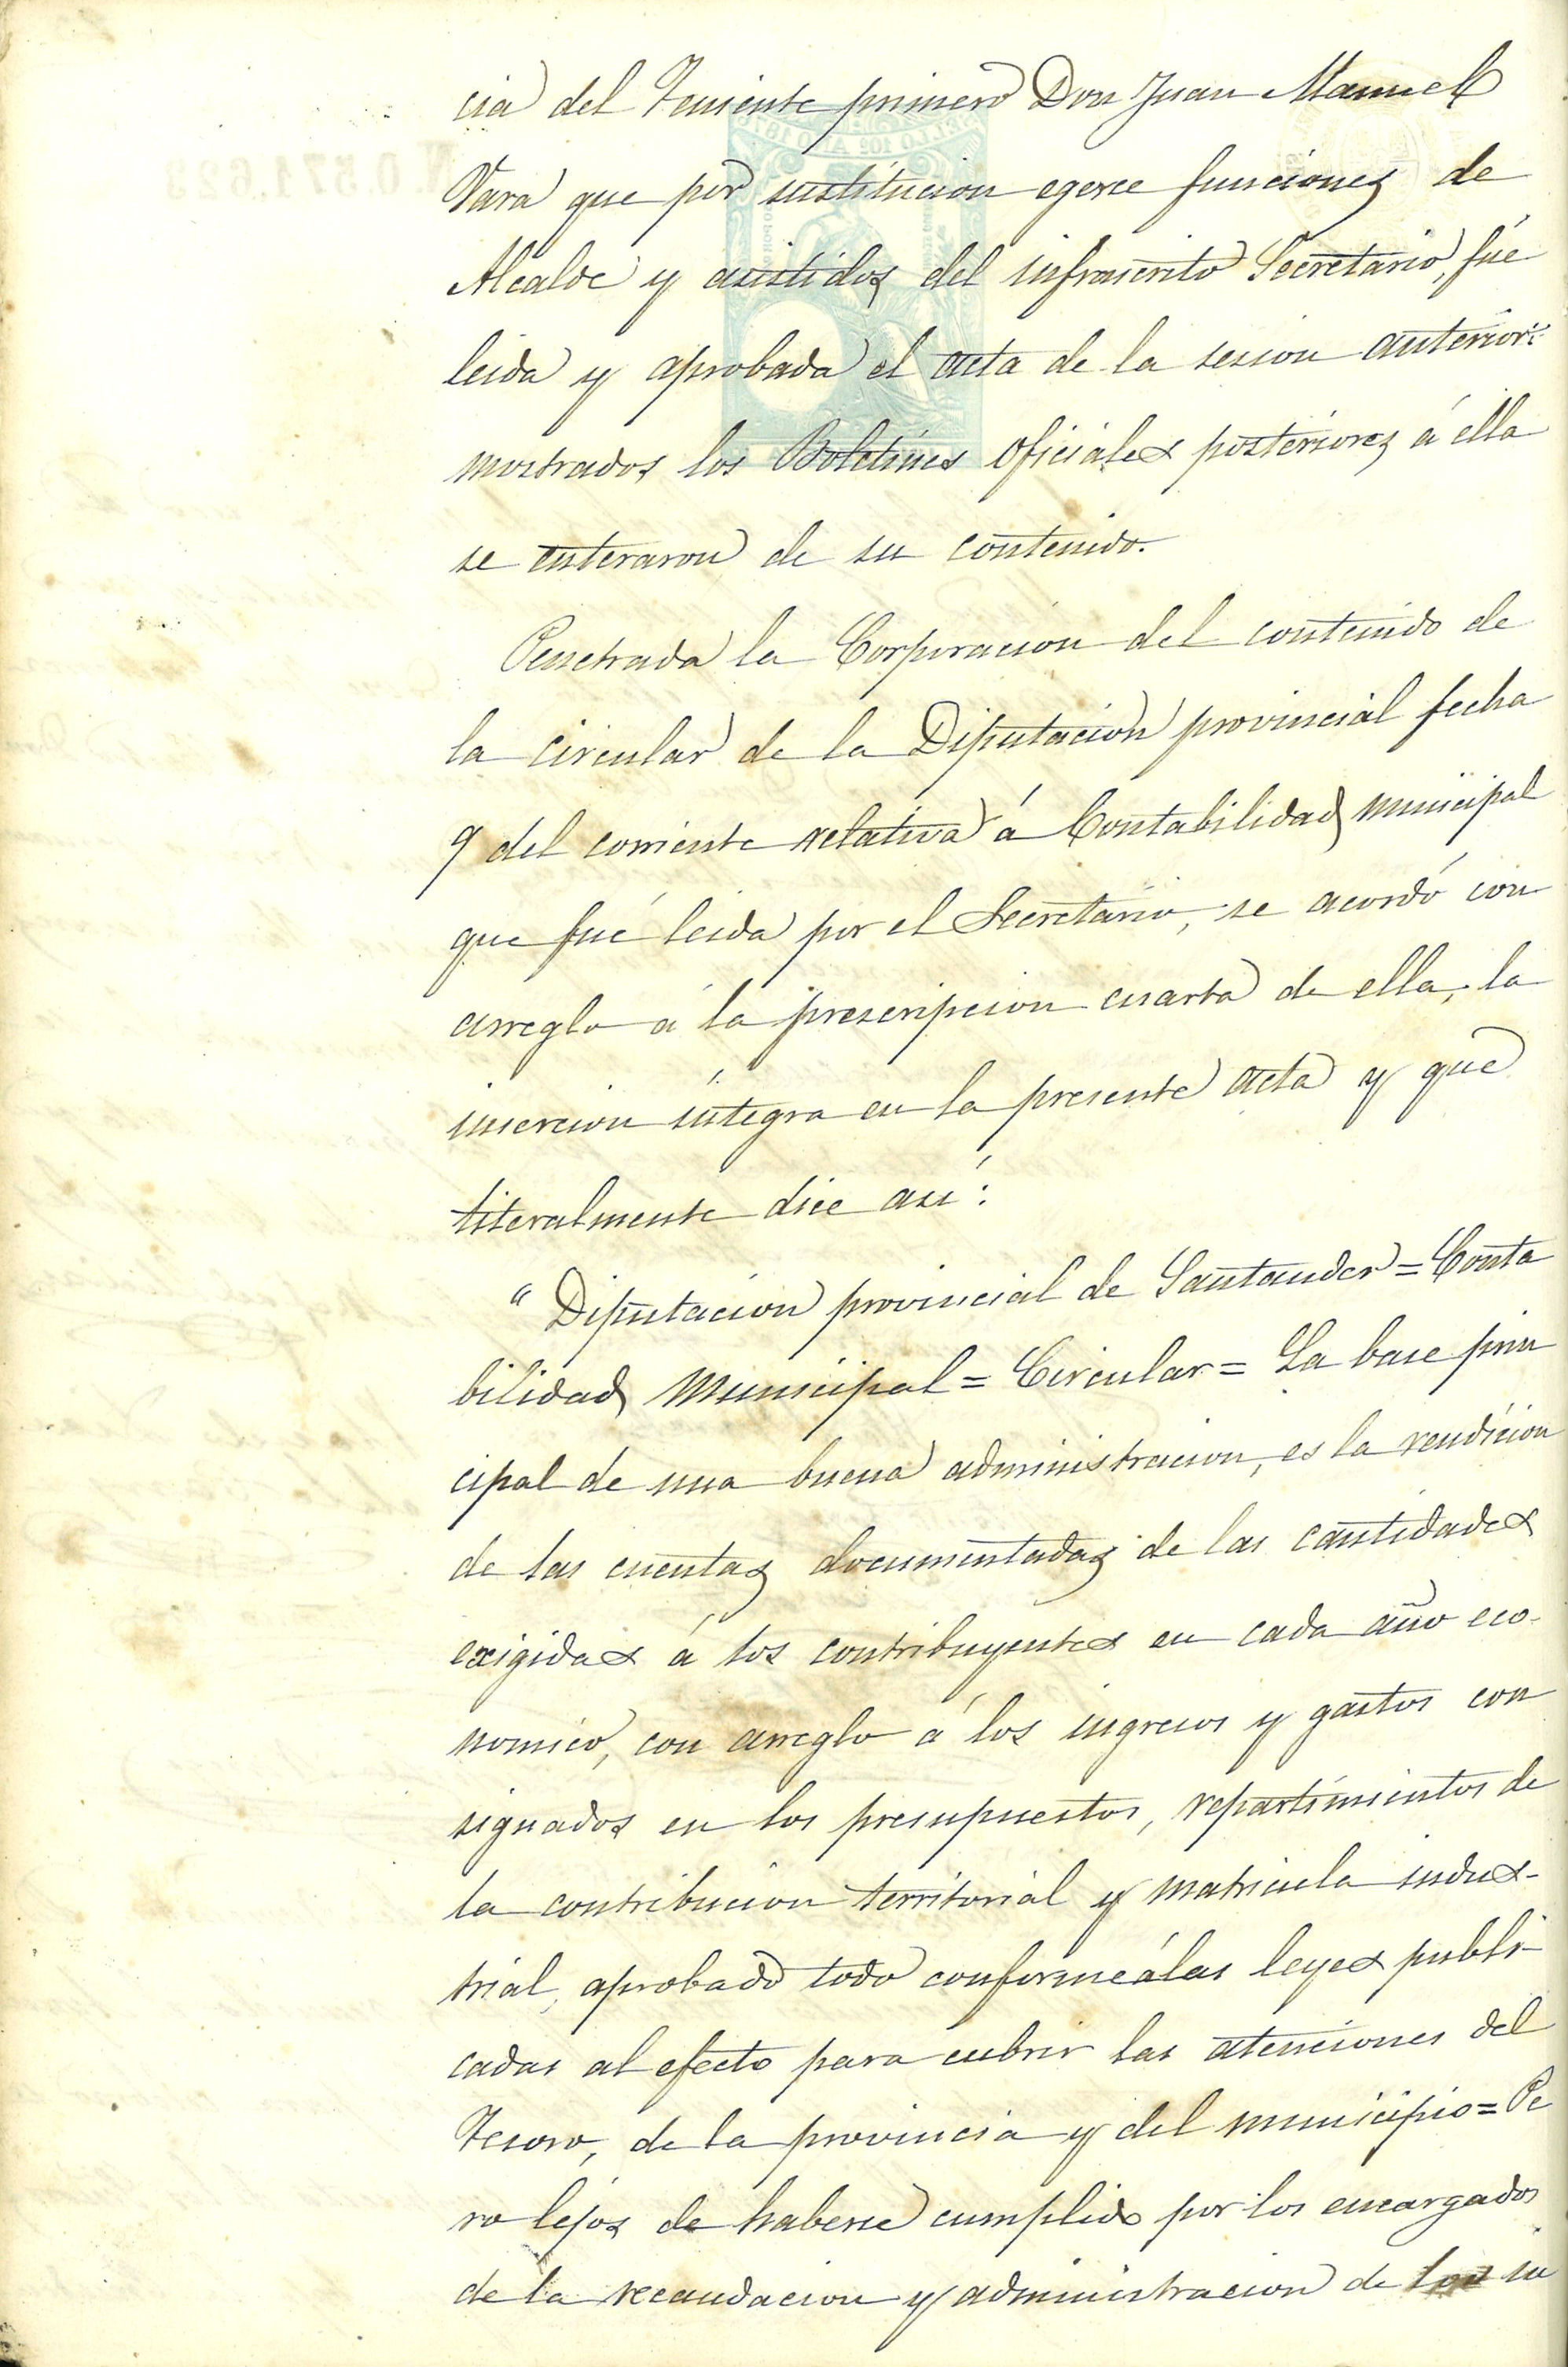 cia del Teniente primero Don Juan Manuel
Vara que por sustitucion egerce funciones de
Alcalde y asistidos del infrascrito Secretario, fué
leida y aprobada el acta de la sesion anterior:
mostrados los Boletines oficiales posteriores á ella
se enteraron de su contenido.
Penetrada la Corporacion del contenido de
la circular de la Diputacion provincial fecha
9 del corriente relativa á Contabilidad municipal
que fué leida por el Secretario, se acordó con
arreglo á la prescripcion cuarta de ella, la
insercion íntegra en la presente acta y que
literalmente dice así:
"Diputacion provincial de Santander = Conta
bilidad Municipal = Circular = La base prin
cipal de una buena administracion, es la rendicion
de las cuentas documentadas de las cantidades
exigidas á los contribuyentes en cada año eco-
nomico, con arreglo á los ingresos y gastos con
signados en los presupuestos, repartimientos de
la contribucion territorial y matricula indus-
trial, aprobado todo conforme á las leyes publi-
cadas al efecto para cubrir las atenciones del
Tesoro, de la provincia y del municipio = Pe
ro lejos de haberse cumplido por los encargados
de la recaudacion y administracion de los in
N.0.571.623